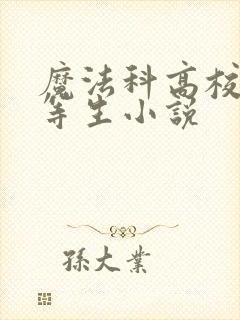 魔法科高校
等生小説
孫大業